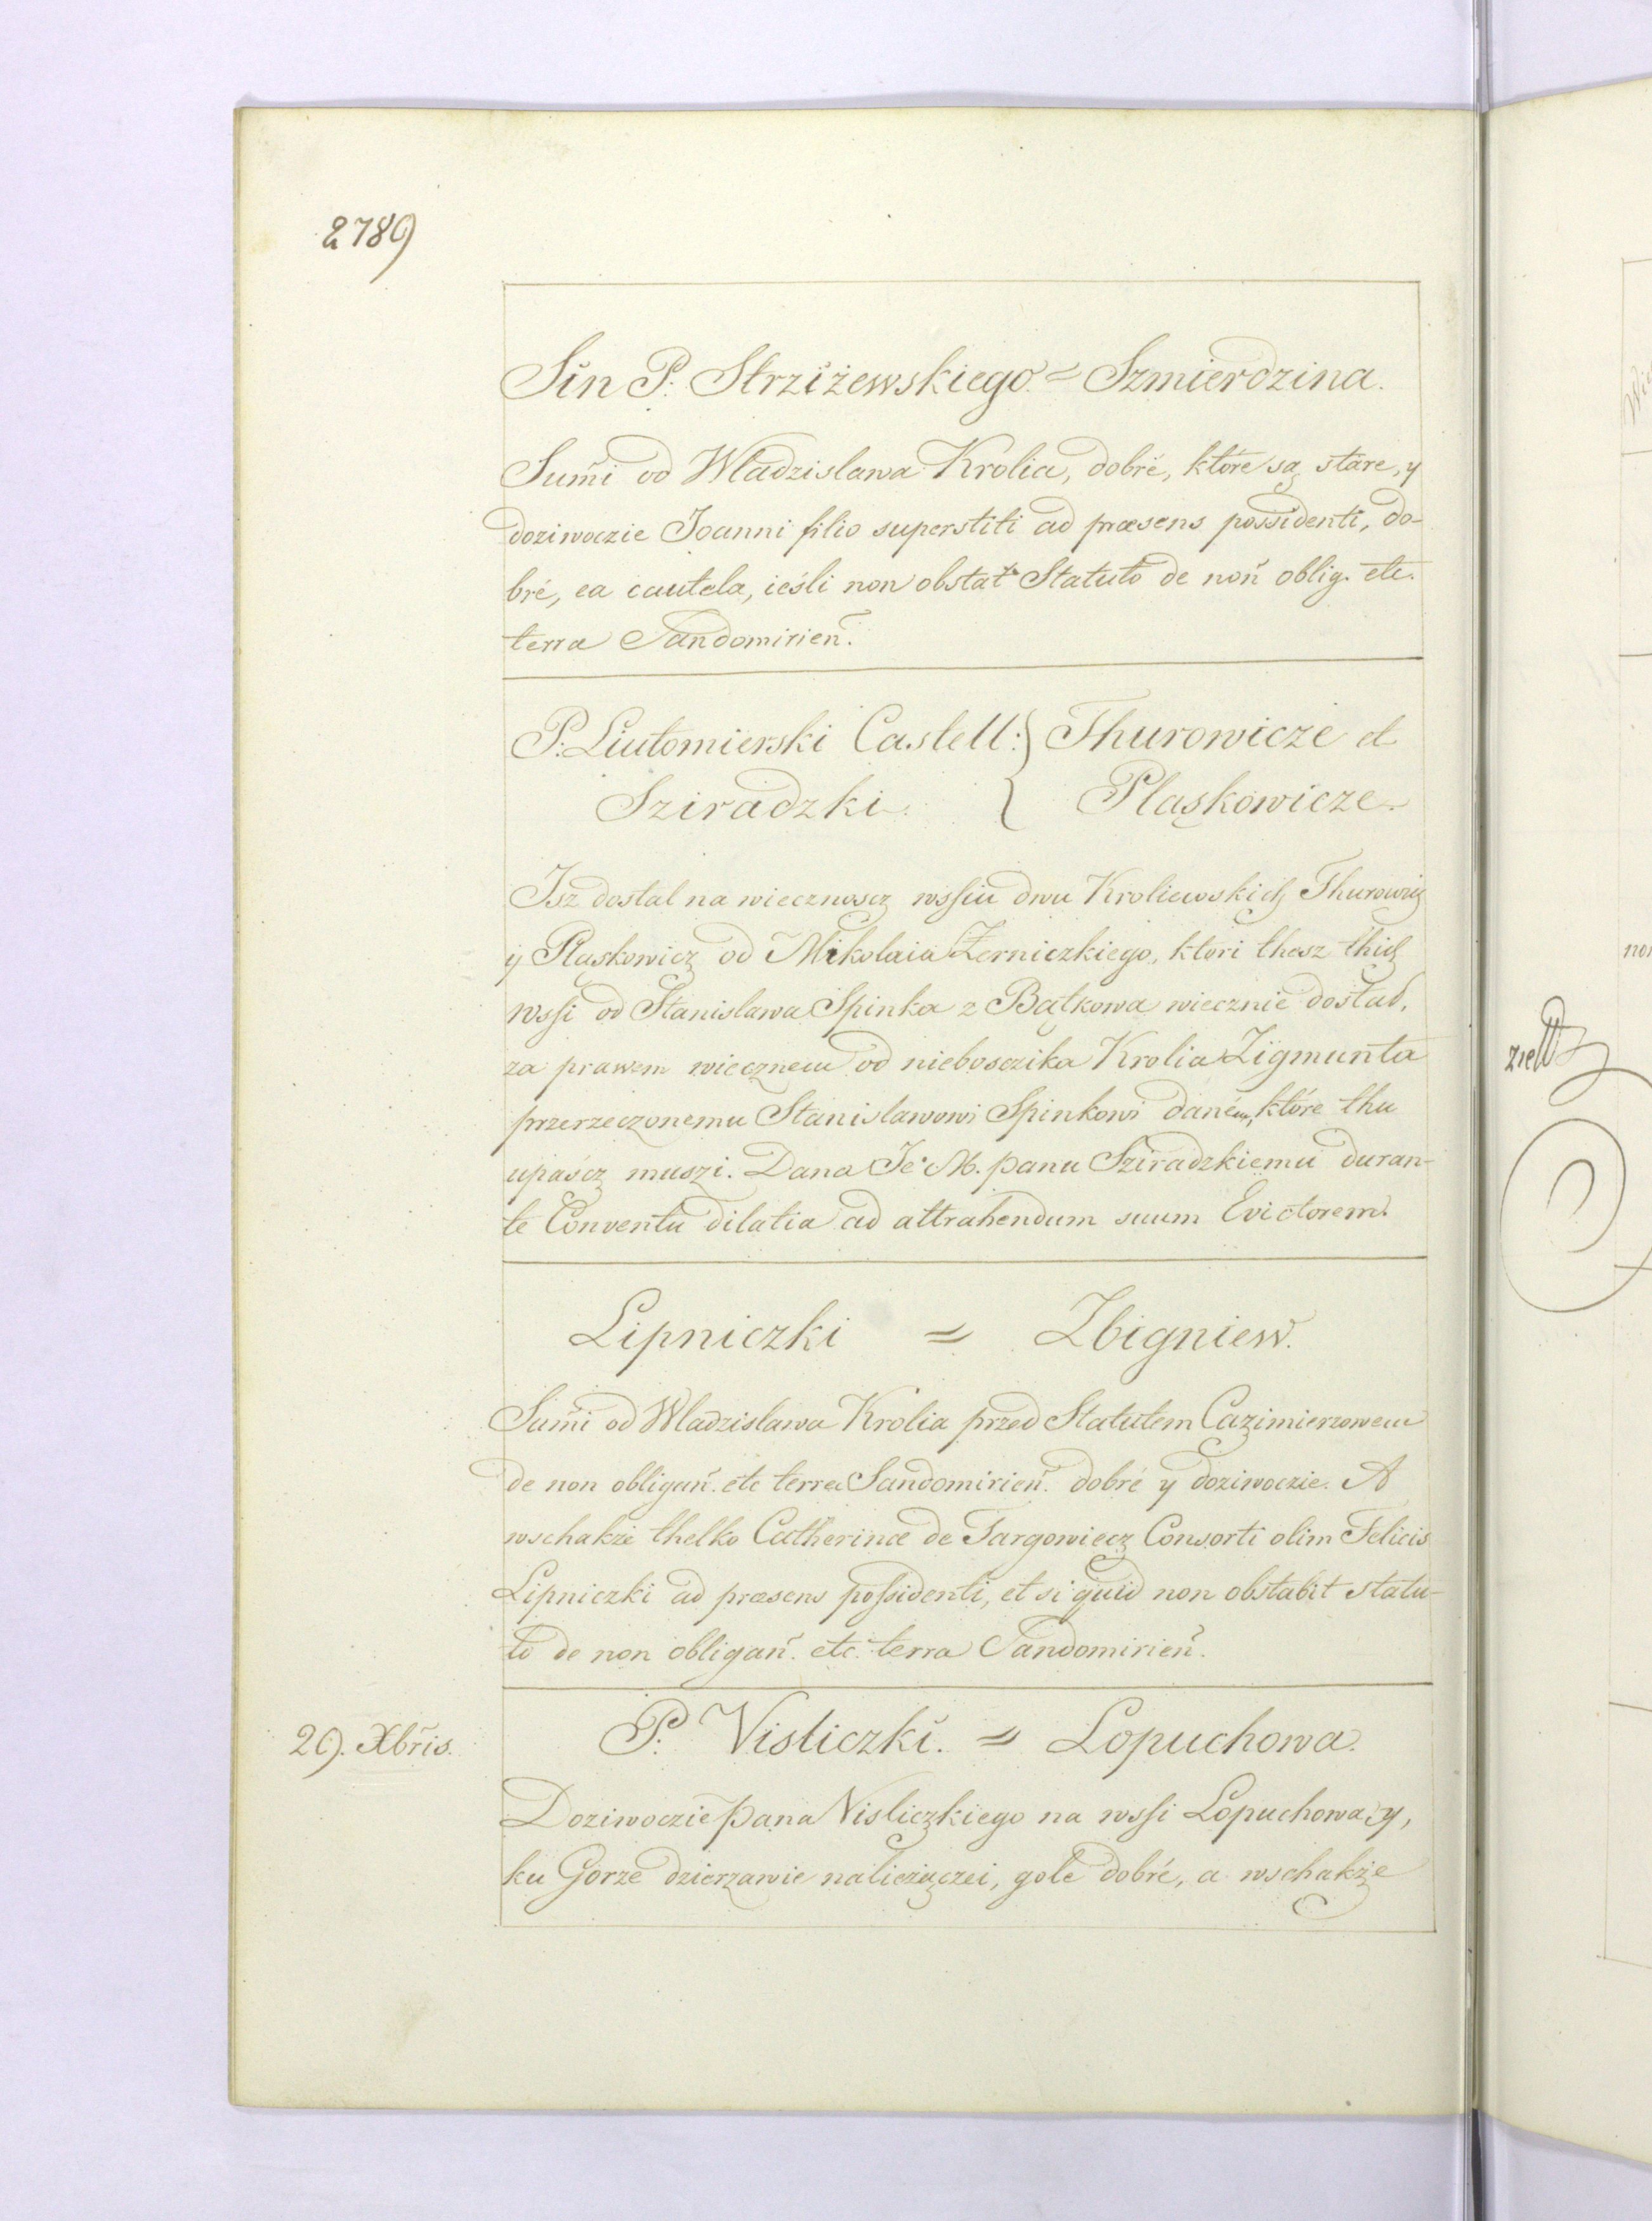 2789
Sin P. Strziżewskiego = Szmierdzina.
Sum̃i od Wladzislawa Krolia, dobré, które są stare, y
doziwoczie Joanni filio superstiti ad præsens possidenti, do-
bré, ea cautela, ieśli non obstat Statuto de noñ oblig. etc.
terra Sandomirieñ.
P. Liutomierski Castell: } Thurowicze et
Sziradzki. { Plaskowicze.
Isz dostal na wiecznoscz wssiu dwu Kroliewskich Thurowicz
ÿ Plaskowicz od Mikolaia Zerniczkiego, ktori thesz thich
wssi od Stanislawa Spinka z Bątkowa wiecznie dostal,
za prawem wiecznem od nieboszika Krolia Zigmunta
przerzeczonemu Stanislawowi Spinkowi daném, które thu
upaścz muszi. Dana Je° M. panu Sziradzkiemu duran-
te Conventu dilatia ad attrahendum suum Evictorem.
Lipniczki = Zbigniew.
Sum̃i od Wladzislawa Krolia przed Statutem Cazimierzowem
de non obligañ. etc terræ Sandomirieñ. dobré y doziwoczie. A
wschakże thelko Catherinæ de Targowiecz Consorti olim Felicis
Lipniczki ad præsens possidenti, et si quid non obstabit statu-
to de non obligañ. etc. terra Sandomirieñ.
29. Xbris.
P. Visliczki. = Lopuchowa.
Doziwoczie pana Visliczkiego na wssi Lopuchowa, y,
ku Gorze dzierzawie nalieżączei, gole dobré, a wschakże